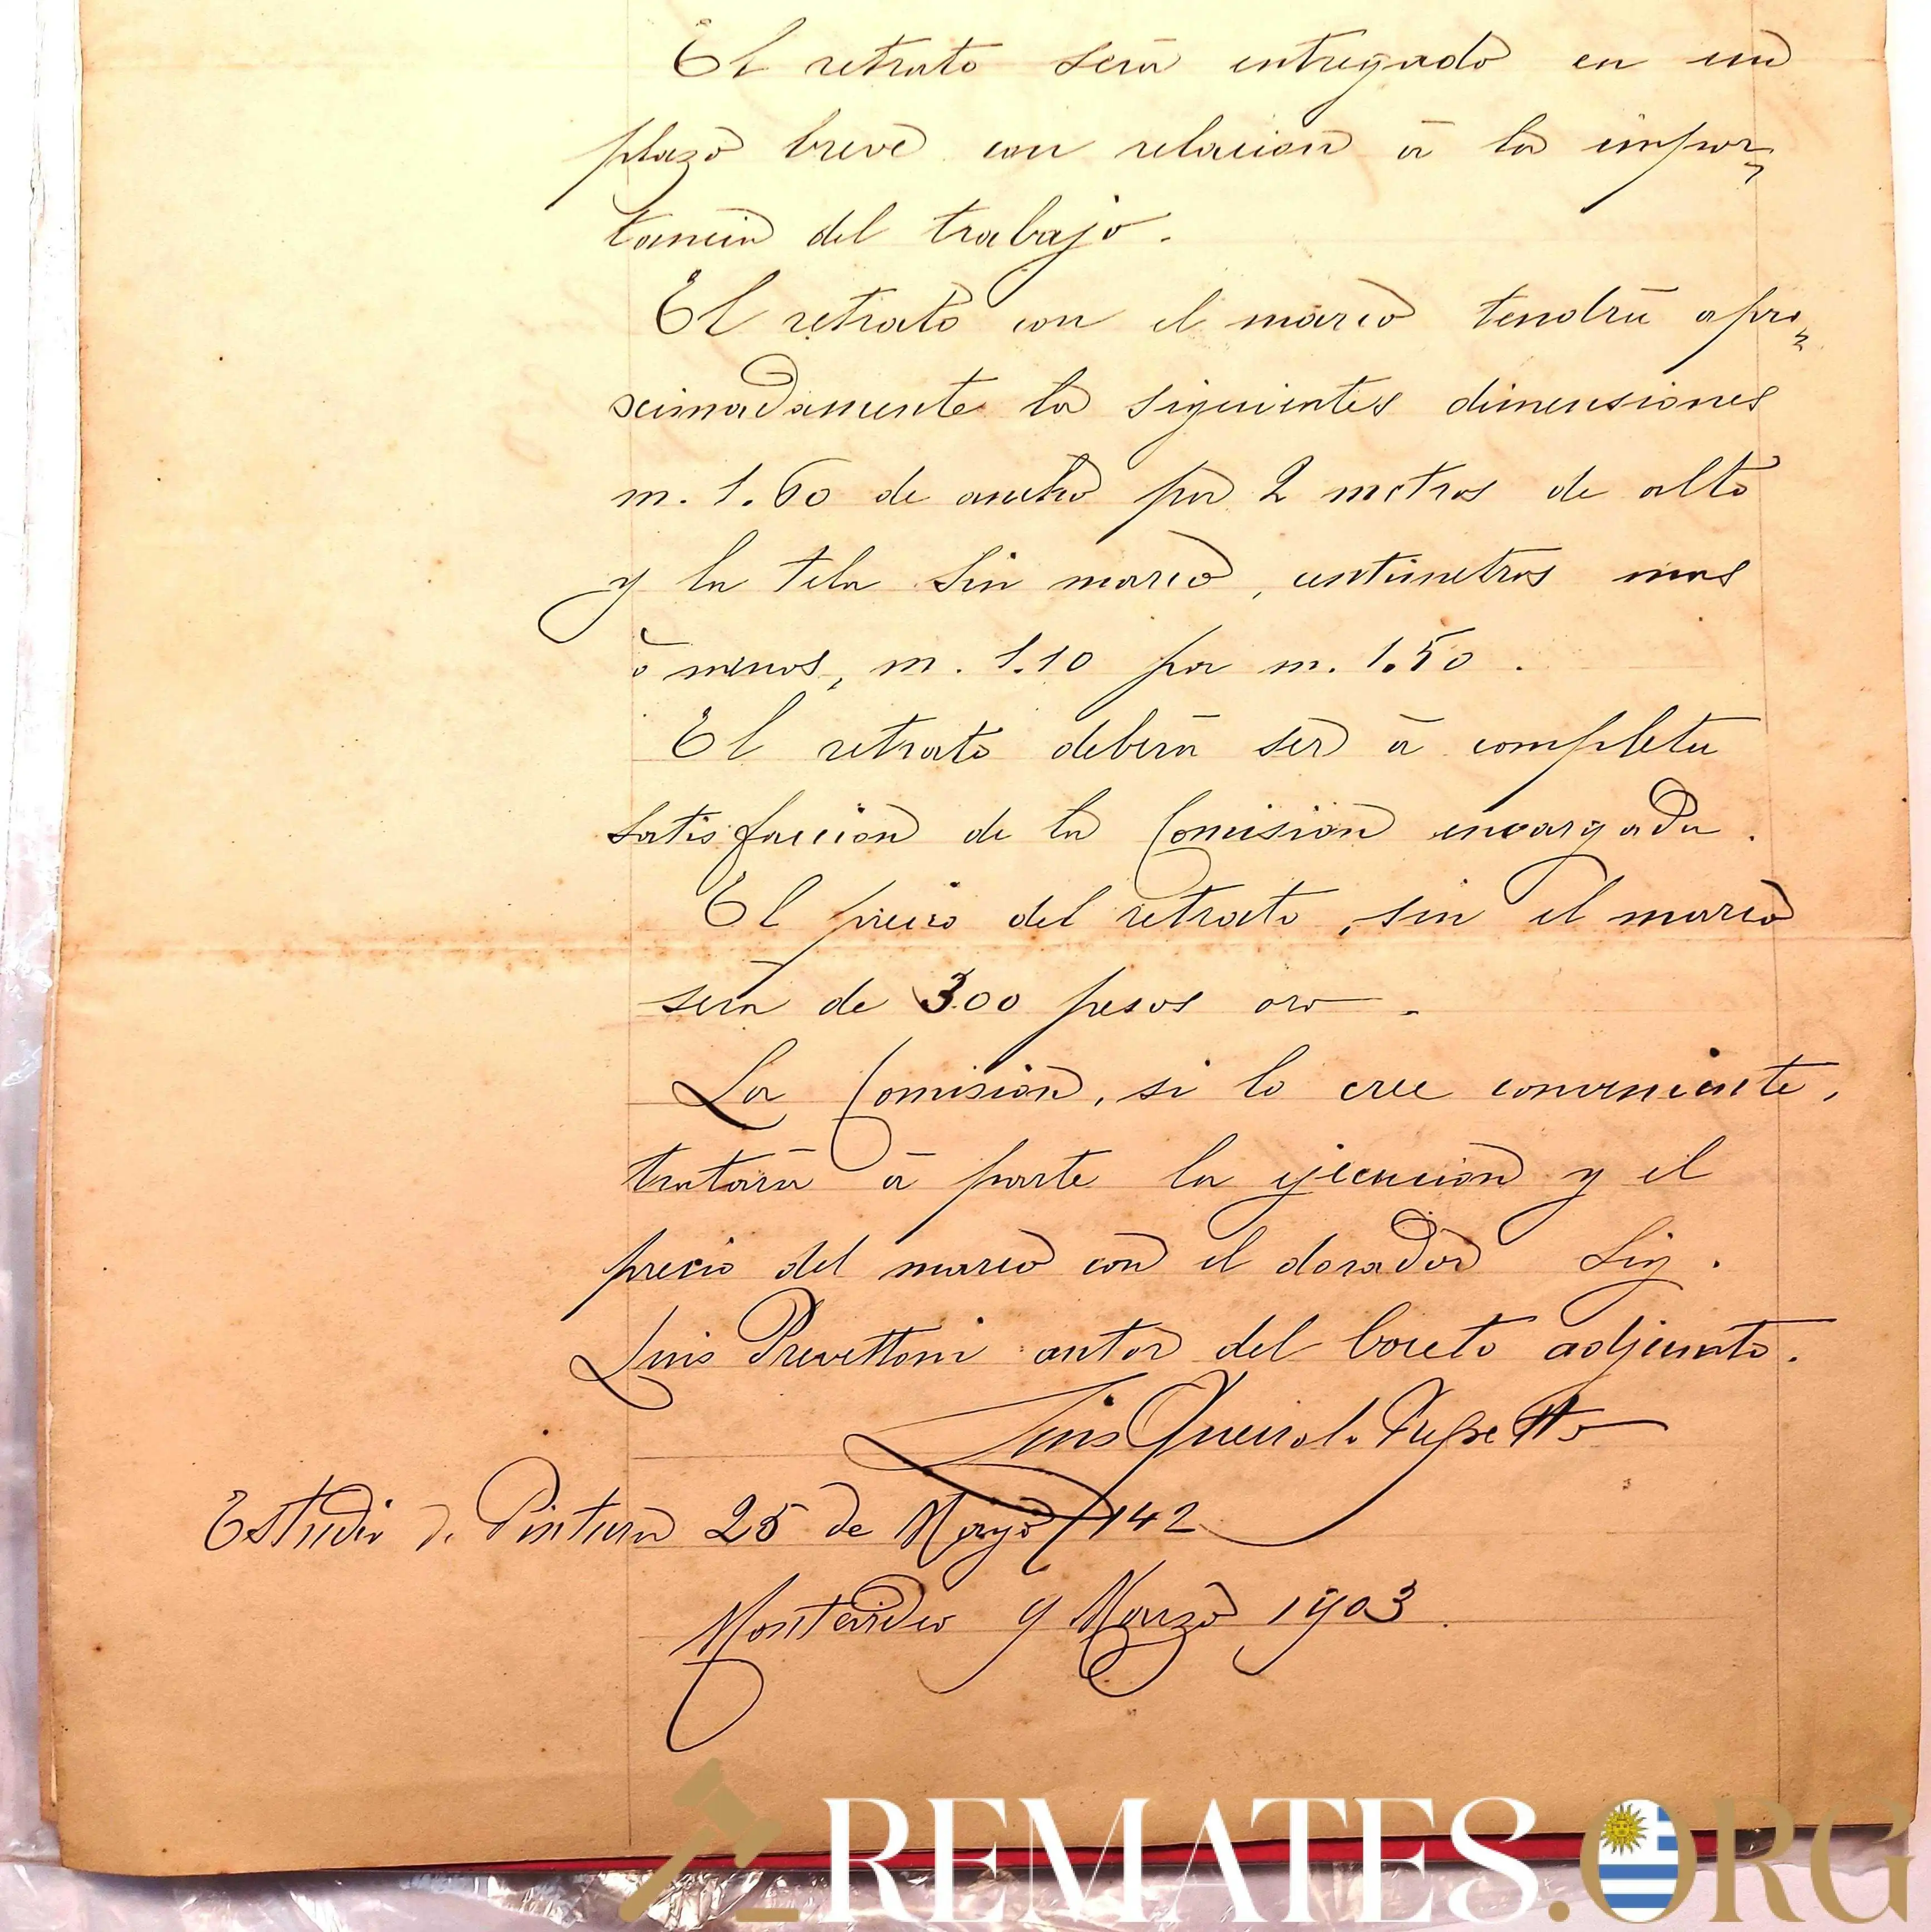 El retrato será entregado en un
plazo breve con relacion á la impor-
tancia del trabajo.
El retrato con el marco tendrá apro-
ximadamente la siguientes dimensiones
m. 1.60 de ancho por 2 metros de alto
y la tela sin marco, centimetros mas
ó menos, m. 1.10 por m. 1.50.
El retrato deberá ser á completa
satisfaccion de la Comision encargada.
El precio del retrato, sin el marco
será de 300 pesos oro.
La Comision, si lo cree conveniente,
tratará á parte la ejecucion y el
precio del marco con el dorador Sig.
Luis Prevettoni autor del boceto adjunto.
Luis Queirolo Repetto
Estudio de Pintura 25 de Mayo 142
Montevideo 9 Marzo 1903
REMATES.ORG